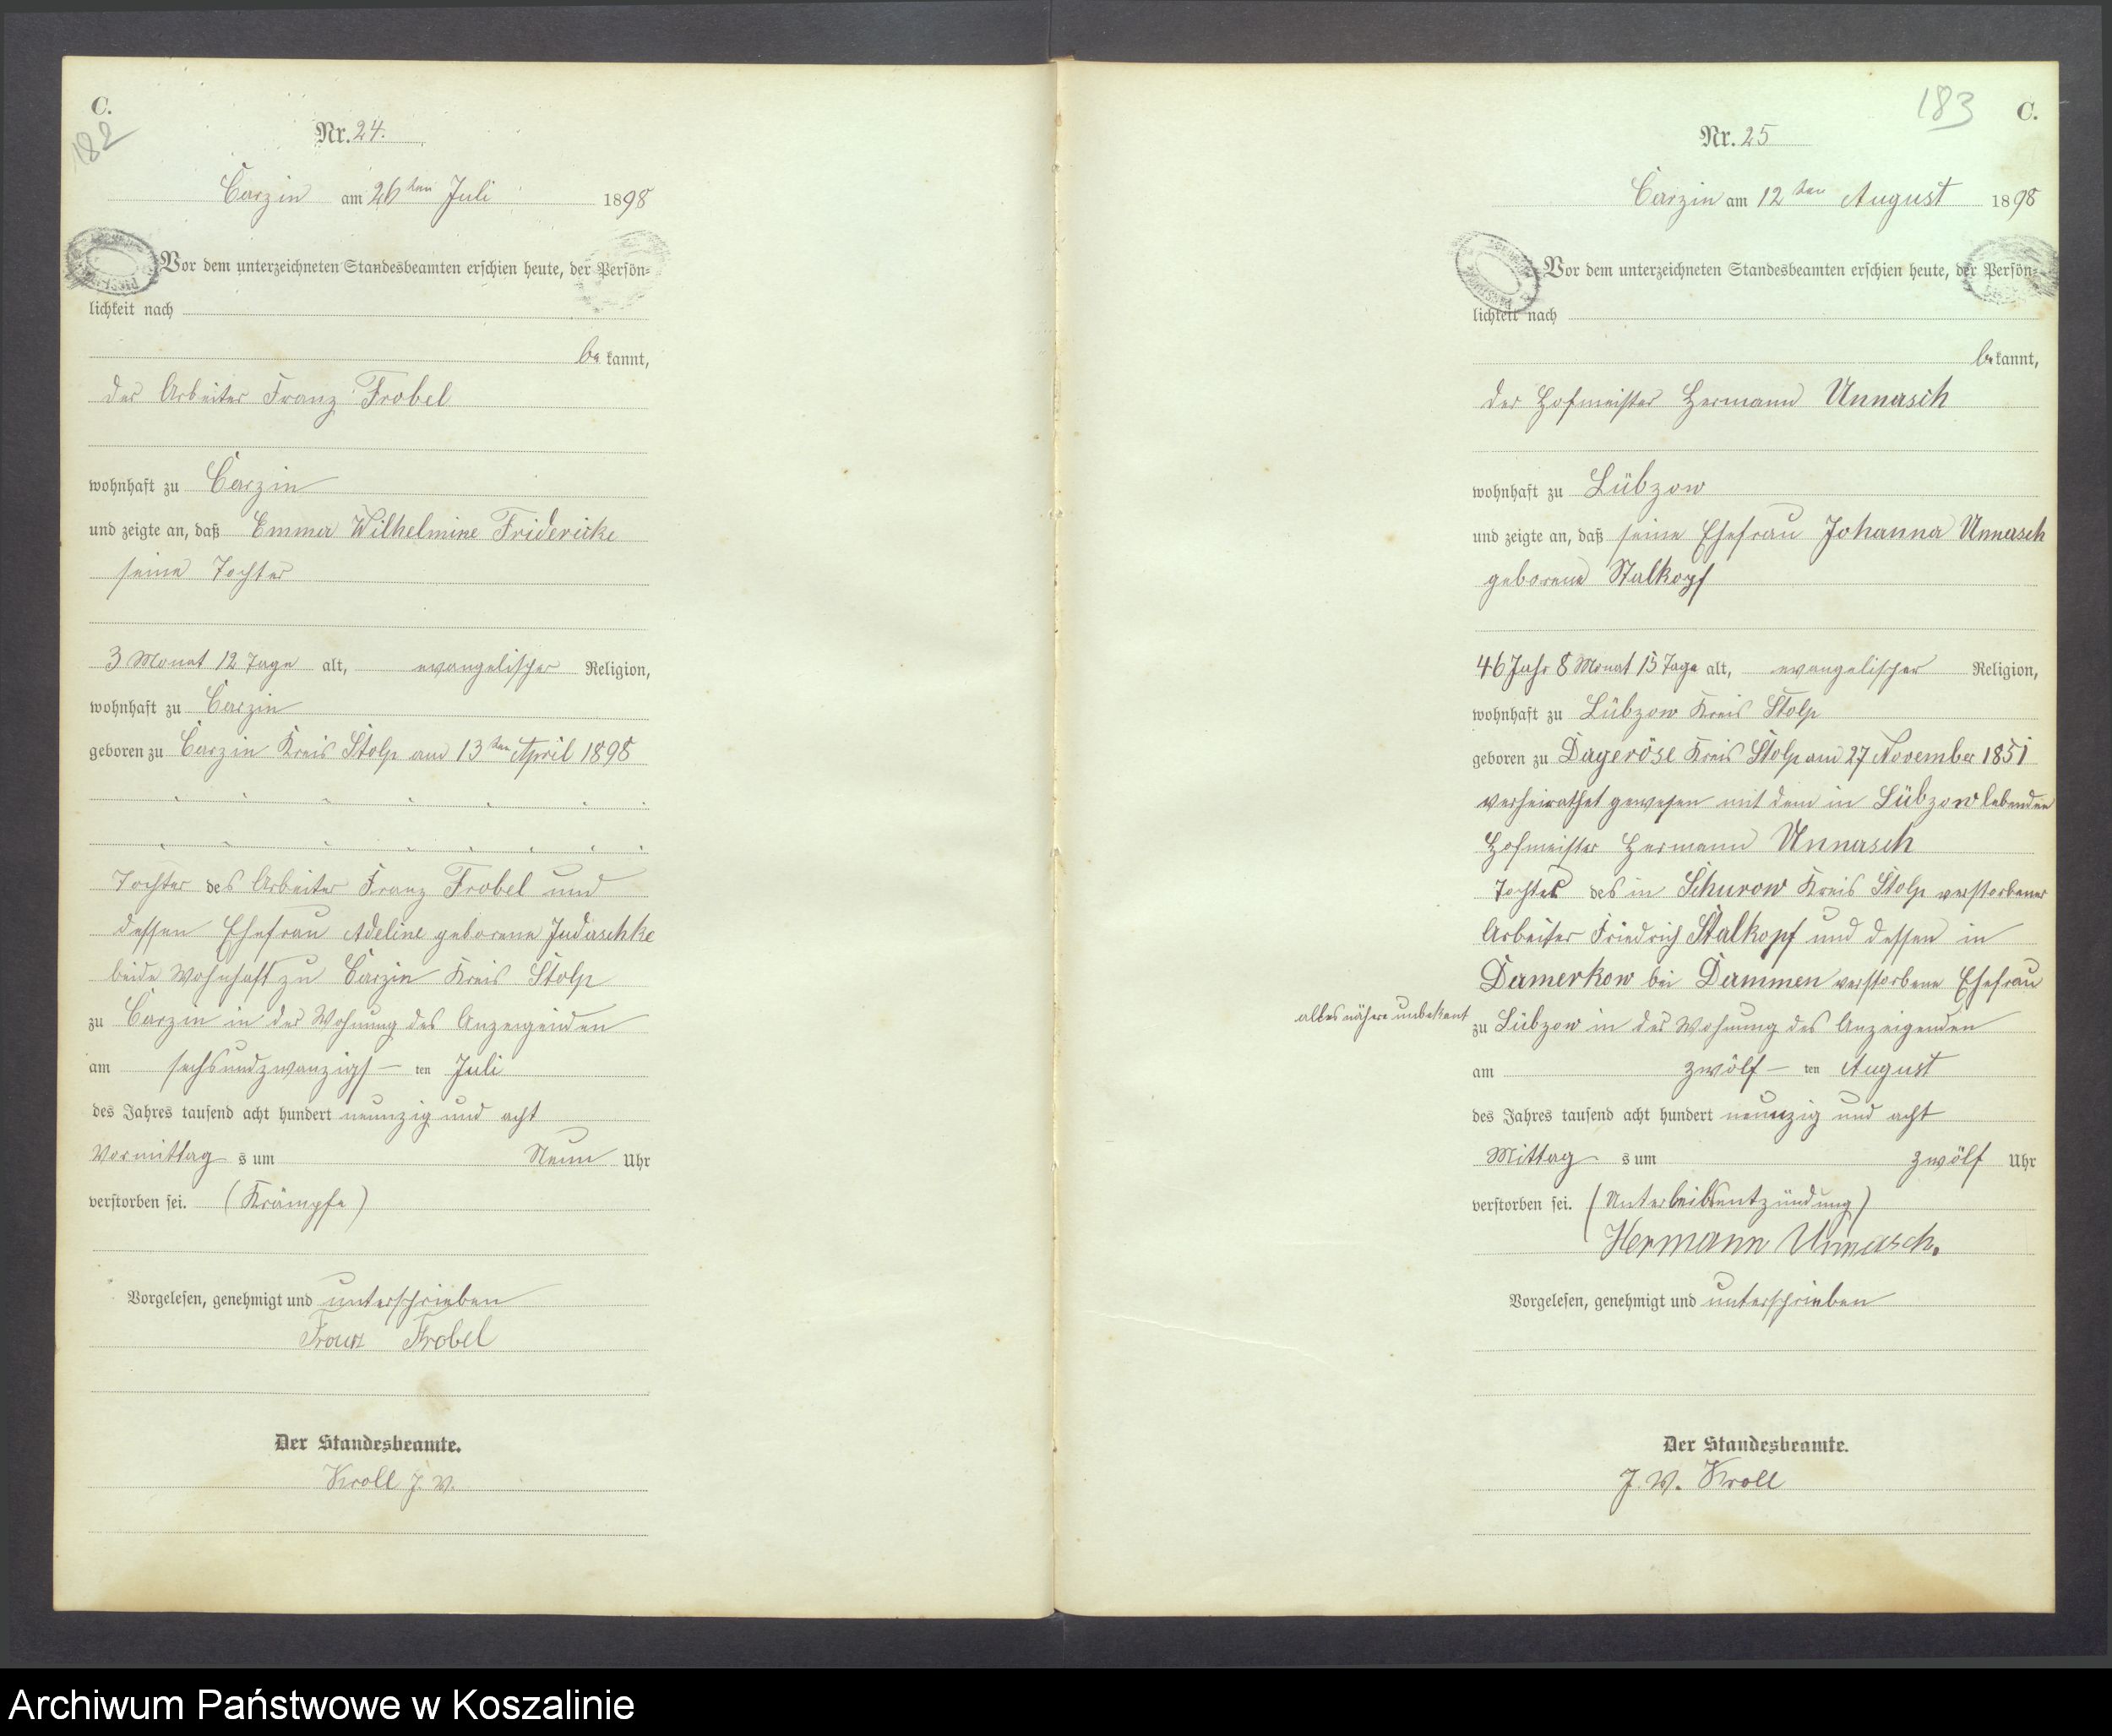 C.
182
Nr. 24.
Carzin am 26ten Juli 1898
Vor dem unterzeichneten Standesbeamten erschien heute, der Persön-
lichkeit nach
be kannt,
der Arbeiter Franz Frobel
wohnhaft zu Carzin
und zeigte an, daß Emma Wilhelmine Fridericke
seine Tochter
3 Monat 12 Tage alt, evangelischer Religion,
wohnhaft zu Carzin
geboren zu Carzin Kreis Stolp am 13ten April 1898
Tochter des Arbeiter Franz Frobel und
dessen Ehefrau Adeline geborene Judaschke
beide wohnhaft zu Carzin Kreis Stolp
zu Carzin in der Wohnung des Anzeigenden
am sechsundzwanzigs – ten Juli
des Jahres tausend acht hundert neunzig und acht
Vormittag s um Neun Uhr
verstorben sei. (Krämpfe)
Vorgelesen, genehmigt und unterschrieben
Franz Frobel
Der Standesbeamte.
Kroll J. V.
183
C.
Nr. 25
Carzin am 12ten August 1898
Vor dem unterzeichneten Standesbeamten erschien heute, der Persön-
lichkeit nach
be kannt,
der Hofmeister Hermann Unnasch
wohnhaft zu Lübzow
und zeigte an, daß seine Ehefrau Johanna Unnasch
geborene Stalkopf
46 Jahr 8 Monat 15 Tage alt, evangelischer Religion,
wohnhaft zu Lübzow Kreis Stolp
geboren zu Dageröse Kreis Stolp am 27 November 1851
verheirathet gewesen mit dem in Lübzow lebenden
Hofmeister Hermann Unnasch
Tochter des in Schurow Kreis Stolp verstorbener
Arbeiter Friedrich Stalkopf und dessen in
Damerkow bei Dammen verstorbene Ehefrau
alles nähere unbekant
zu Lübzow in der Wohnung des Anzeigenden
am zwölf – ten August
des Jahres tausend acht hundert neunzig und acht
Mittag s um zwölf Uhr
verstorben sei. (Unterleibsentzündung)
Hermann Unnasch.
Vorgelesen, genehmigt und unterschrieben
Der Standesbeamte.
J. V. Kroll
Archiwum Państwowe w Koszalinie